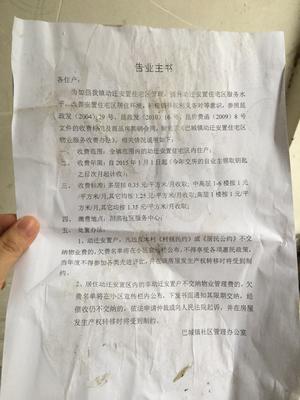 告业主书
各住户：
为加强我镇动迁安置住宅区管理，提升动迁安置住宅区服务水
平，改善安置住宅区居住环境，
政发（2004）29 号、昆政发（2010）16 号、昆价费函（2009）8 号
文件的收费标准及
《巴城镇动迁安置住宅区
物业服务收费办法》，
一、 收费范围：全镇范围内的动迁安置住宅区。
二、 收费年限：自 2015 年 1 月 1 日起（今年交房的自业主领取钥匙之
日次月起计收）。
三、 收费标准：多层按 0.35 元/平方米/月收取；中高层 1-6 楼按 1 元
/平方米/月，其它均按 1.25 元/平方米/月收取；高层 1-6 楼按 1 元
/平方米/月，其它均按 1.35 元/平方米/月收取。
四、 缴费地点：社区服务中心。
五、 处置办法：
1、动迁安置户，先违反本村《村规民约》或《居民公约》不交
纳物业费的，欠费名单将在小区宣传栏内公布，不得享受各项惠民政策，
当年度不得参加各类先进评比，并在该房屋发生产权转移时将受到制约。
2、居住动迁安置区内的非动迁安置户不交纳物业管理费的，欠
费名单将在小区宣传栏内公布，下发书面通知其限期交纳，经
催收仍不交纳的，依法申请仲裁或向人民法院起诉，并在房屋
发生产权转移时将受到制约。
巴城镇社区管理办公室